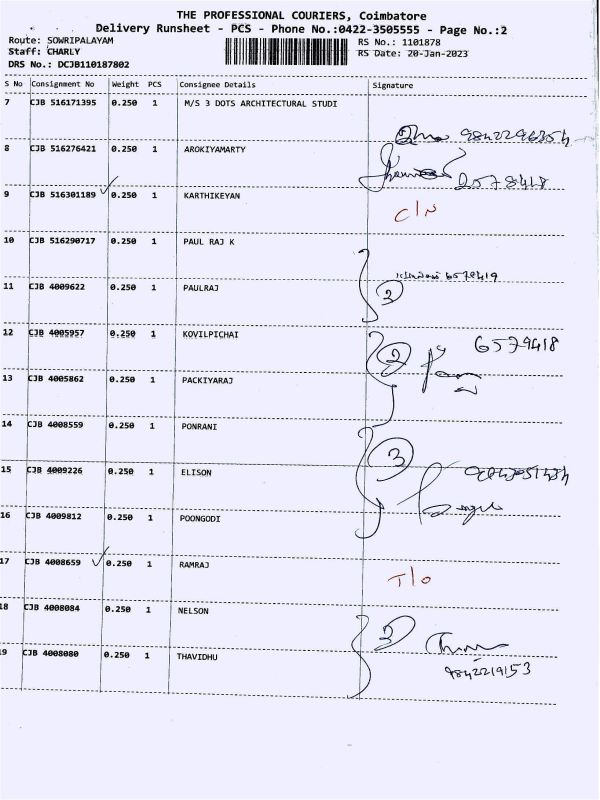 THE PROFESSIONAL COURIERS, Coimbatore
Delivery Runsheet - PCS - Phone No.:0422-3505555 - Page No.:2
Route: SOWRIPALAYAM
RS No.: 1101878
Staff: CHARLY
RS Date: 20-Jan-2023
DRS No.: DCJB110187802
S No Consignment No Weight PCS Consignee Details Signature
7 CJB 516171395 0.250 1 M/S 3 DOTS ARCHITECTURAL STUDI
8 CJB 516276421 0.250 1 AROKIYAMARTY
9 CJB 516301189 0.250 1 KARTHIKEYAN
C/N
10 CJB 516290717 0.250 1 PAUL RAJ K
11 CJB 4009622 0.250 1 PAULRAJ
12 CJB 4005957 0.250 1 KOVILPICHAI
2 6579418
13 CJB 4005862 0.250 1 PACKIYARAJ
14 CJB 4008559 0.250 1 PONRANI
3
15 CJB 4009226 0.250 1 ELISON
16 CJB 4009812 0.250 1 POONGODI
17 CJB 4008659 0.250 1 RAMRAJ
T/O
18 CJB 4008084 0.250 1 NELSON
19 CJB 4008080 0.250 1 THAVIDHU
9842219153